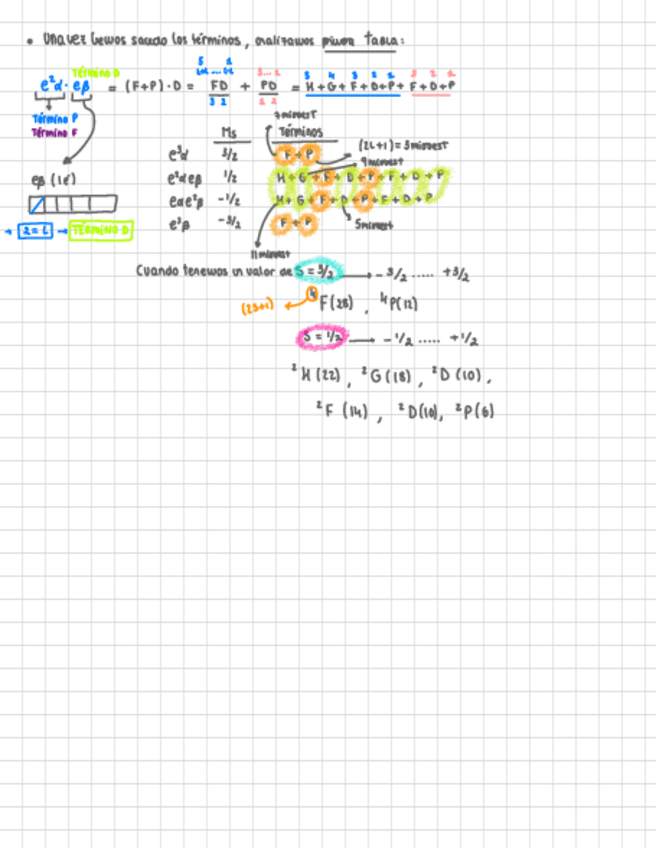 • Una vez hemos sacado los términos, analizamos primera Tabla:
Término D
e²α · eβ = (F+P) · D = FD + PD = H+G+F+D+P+ F+D+P
5 1 3...1 5 4 3 2 1 3 2 1
3 2 1 2
Término P
Término F
eβ (1e⁻)
→ 2=L → TÉRMINO D
Ms Términos
7 microest
e³α 3/2 F+P
(2L+1) = 3 microest
9 microest
e²αeβ 1/2 H+G+F+D+P+F+D+P
eαe²β -1/2 H+G+F+D+P+F+D+P
e³β -3/2 F+P
5 microest
11 microest
Cuando tenemos un valor de S = 3/2 → -3/2 ..... +3/2
(2S+1) ← ⁴F(28) , ⁴P(12)
S = 1/2 → -1/2 ..... +1/2
²H (22) , ²G(18) , ²D (10) ,
²F (14) , ²D(10), ²P(6)